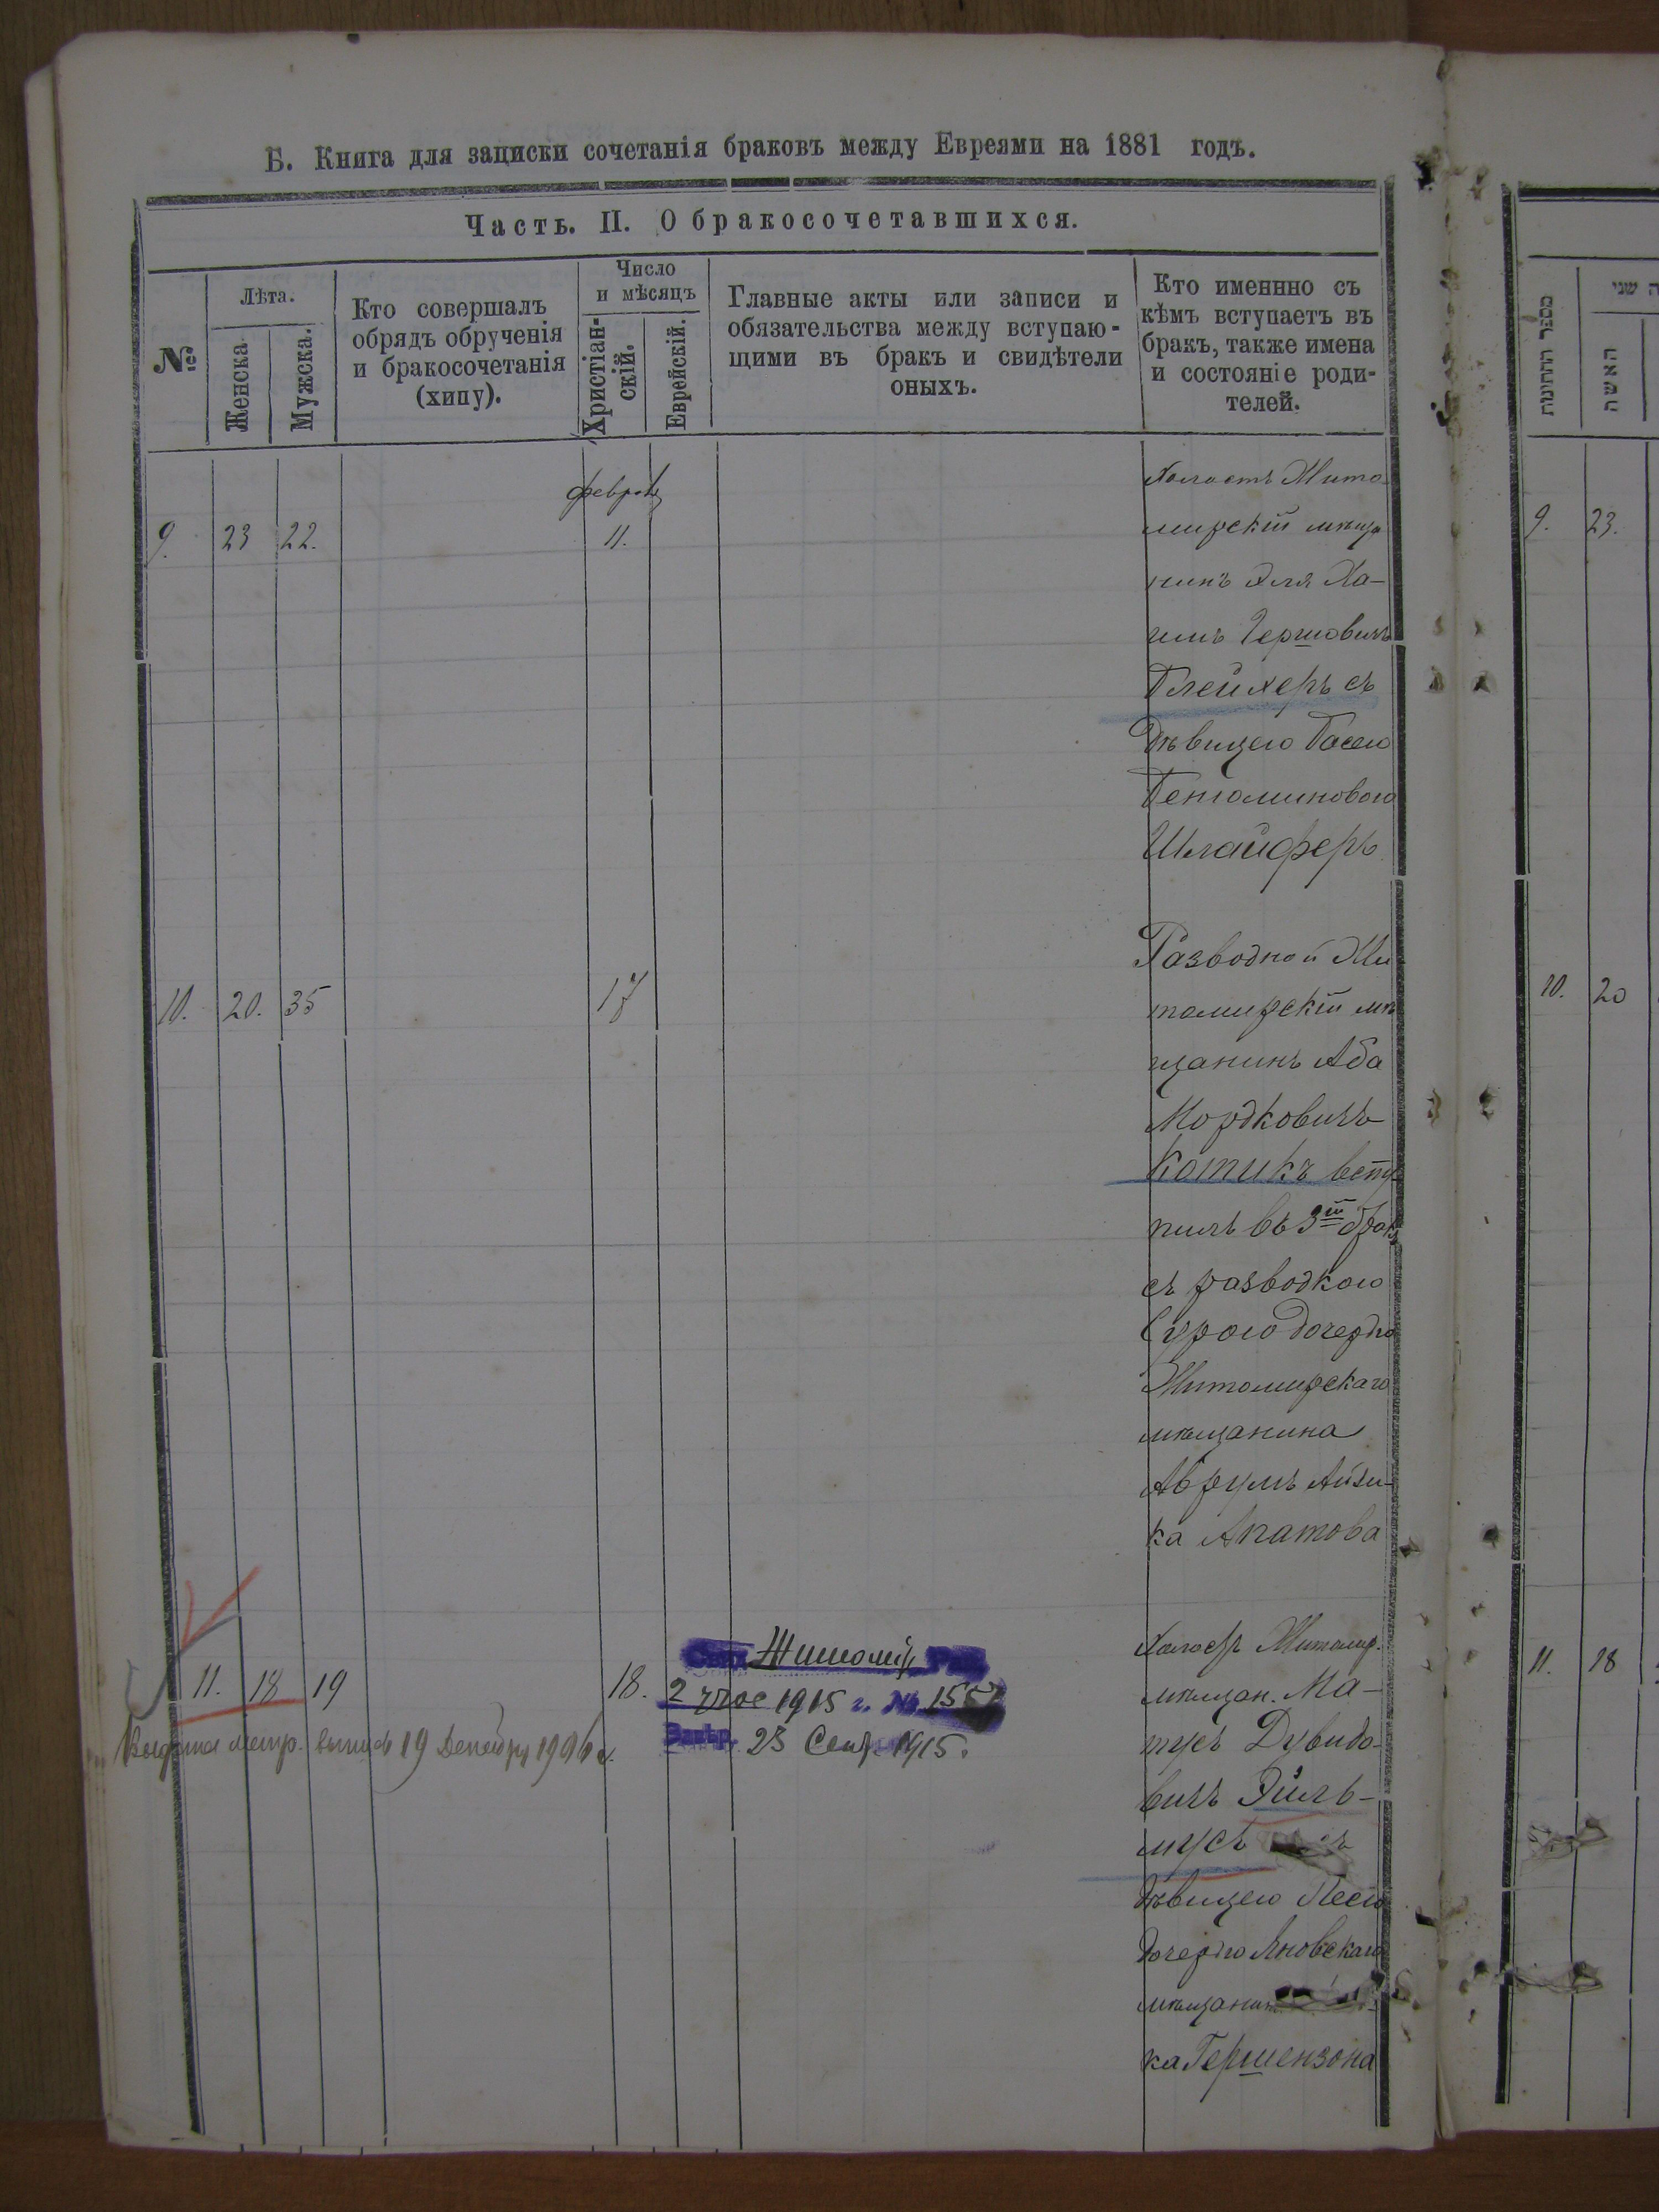 Б. Книга для записки сочетанія браковъ между Евреями на 1881 годъ.
Часть. II. О бракосочетавшихся.
№
Лѣта.
Женска.
Мужска.
Кто совершалъ
обрядъ обрученія
и бракосочетанія
(хипу).
Число
и мѣсяцъ
Христіан-
скій.
Еврейскій.
Главные акты или записи и
обязательства между вступаю-
щими въ бракъ и свидѣтели
оныхъ.
Кто именнно съ
кѣмъ вступаетъ въ
бракъ, также имена
и состояніе роди-
телей.
מספר החתונות
האשה
שני
9. 23 22. 11.
Холостъ Жито
мирскій мѣща
нинъ Эля Ха-
имъ Гершовичъ
Блейхеръ съ
Дѣвицею Басею
Бенюминовою
Шлайферъ
9. 23.
10. 20. 35 17
Разводной Жи
томирскій мѣ
щанинъ Аба
Мордковичъ
Котикъ всту
пилъ въ 3ій бракъ
съ разводкою
Сурою дочерью
Житомирскаго
мѣщанина
Аврумъ Айзи-
ка Апатова
10. 20
11. 18 19 18.
Житомір
2 1915 г. № 1557
23 Сент. 1915.
Выдана метр. выпись 19 Декабря
Житомир.
мѣщан. Ма-
тусъ Дувидо-
вичъ Эйль-
мусъ
дѣвицею Песею
дочерью Яновскаго
ка Гершензона
11. 18